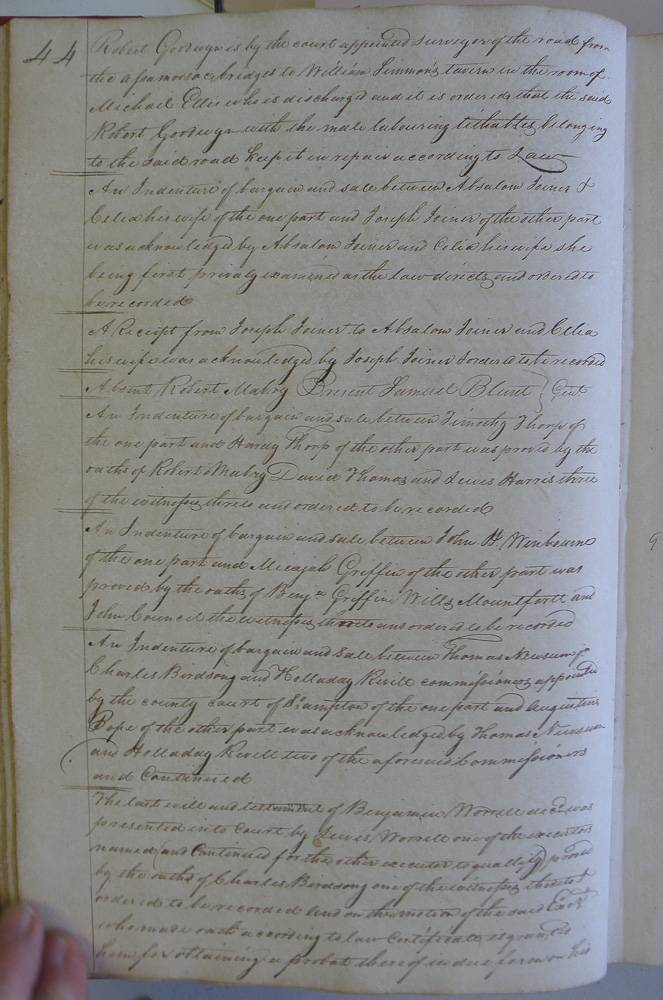 44
Robert Goodwyn is by the court appointed surveyor of the road from
the bridges to William Simmons tavern in the room of
Michael Ellis who is discharged and it is ordered that the said
Robert Goodwyn with the male labouring tithables belonging
to the said road keep it in repair according to Law
An Indenture of bargain and sale between Absalom Joiner &
Celia his wife of the one part and Joseph Joiner of the other part
was acknowledged by Absalom Joiner and Celia his wife she
being first privaly examined as the law directs and ordered to
be recorded
A Receipt from Joseph Joiner to Absalom Joiner and Celia
his wife was acknowledged by Joseph Joiner & ordered to be recorded
Absent Robert Mabry Present Samuel Blunt } Gent
An Indenture of bargain and sale between Timothy Thorp of
the one part and Hardy Thorp of the other part was proved by the
oaths of Robert Mabry David Thomas and Lewis Harris three
of the witnesses thereto and ordered to be recorded
An Indenture of bargain and sale between John H. Winbourne
of the one part and Micajah Griffin of the other part was
proved by the oaths of Benjn Griffin Wills Mountfortt and
John Council the witnesses thereto and ordered to be recorded
An Indenture of bargain and sale between Thomas Newsum
Charles Birdsong and Holladay Revill commissioners appointed
by the county court of So'ampton of the one part and Augustine
Pope of the other part was acknowledged by Thomas Newsum
and Holladay Revell two of the aforesaid Commissioners
and Continued
The last will and testament of Benjamin Worrell decd was
presented into Court by Lewis Worrell one of the executors
named (and Continued for the other executor to quallify) proved
by the oaths of Charles Birdsong one of the witnesses thereto &
ordered to be recorded and on the motion of the said Exor
who made oath according to law Certificate is granted
him for obtaining a probat thereof in due form on his